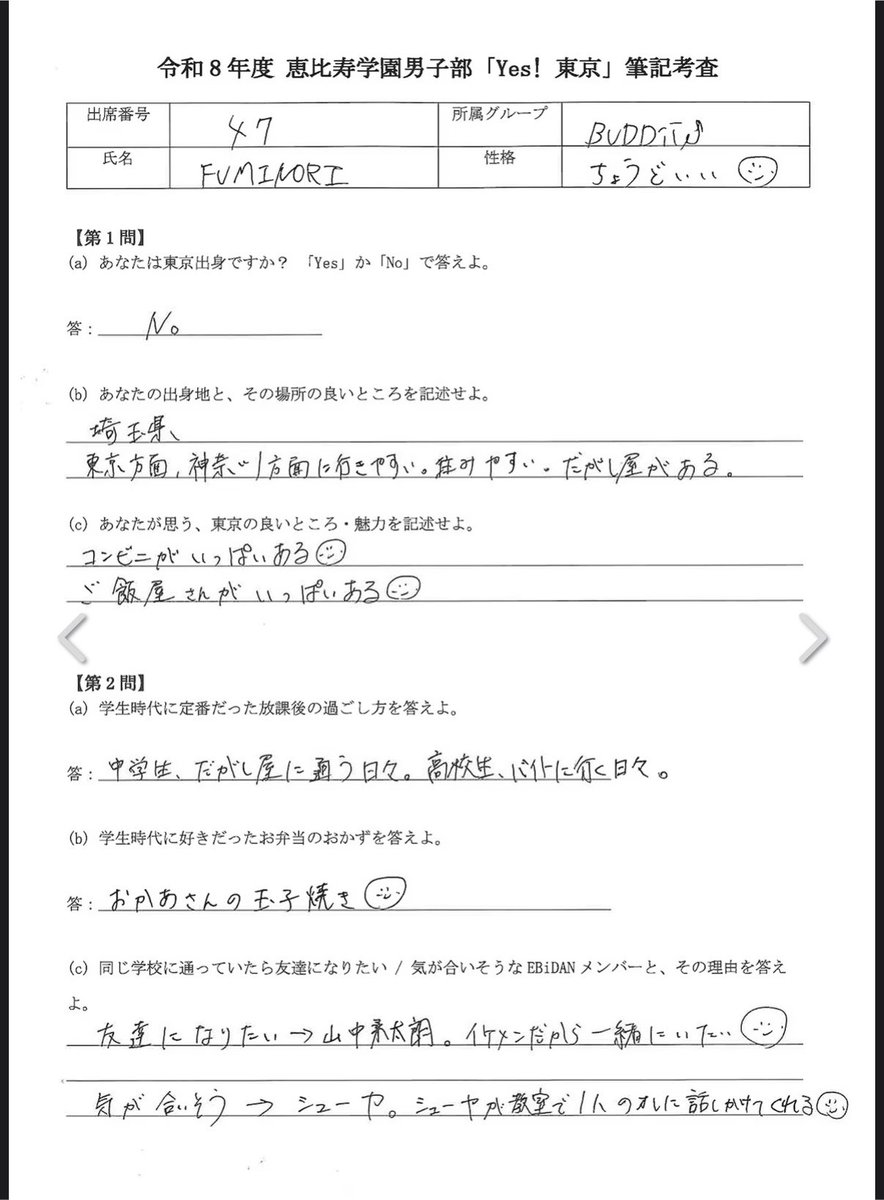 令和8年度 恵比寿学園男子部「Yes! 東京」筆記考査
出席番号 47 所属グループ BUDDiiS
氏名 FUMINORI 性格 ちょうどいい
【第1問】
(a) あなたは東京出身ですか? 「Yes」か「No」で答えよ。
答: No
(b) あなたの出身地と、その場所の良いところを記述せよ。
埼玉県、
東京方面、神奈川方面に行きやすい。住みやすい。だがし屋がある。
(c) あなたが思う、東京の良いところ・魅力を記述せよ。
コンビニがいっぱいある
ご飯屋さんがいっぱいある
【第2問】
(a) 学生時代に定番だった放課後の過ごし方を答えよ。
答: 中学生、だがし屋に通う日々。高校生、バイトに行く日々。
(b) 学生時代に好きだったお弁当のおかずを答えよ。
答: おかあさんの玉子焼き
(c) 同じ学校に通っていたら友達になりたい / 気が合いそうなEBiDANメンバーと、その理由を答え
よ。
友達になりたい→山中柔太朗。イケメンだから一緒にいたい
気が合いそう → シューヤ。シューヤが教室で1人のオレに話しかけてくれる